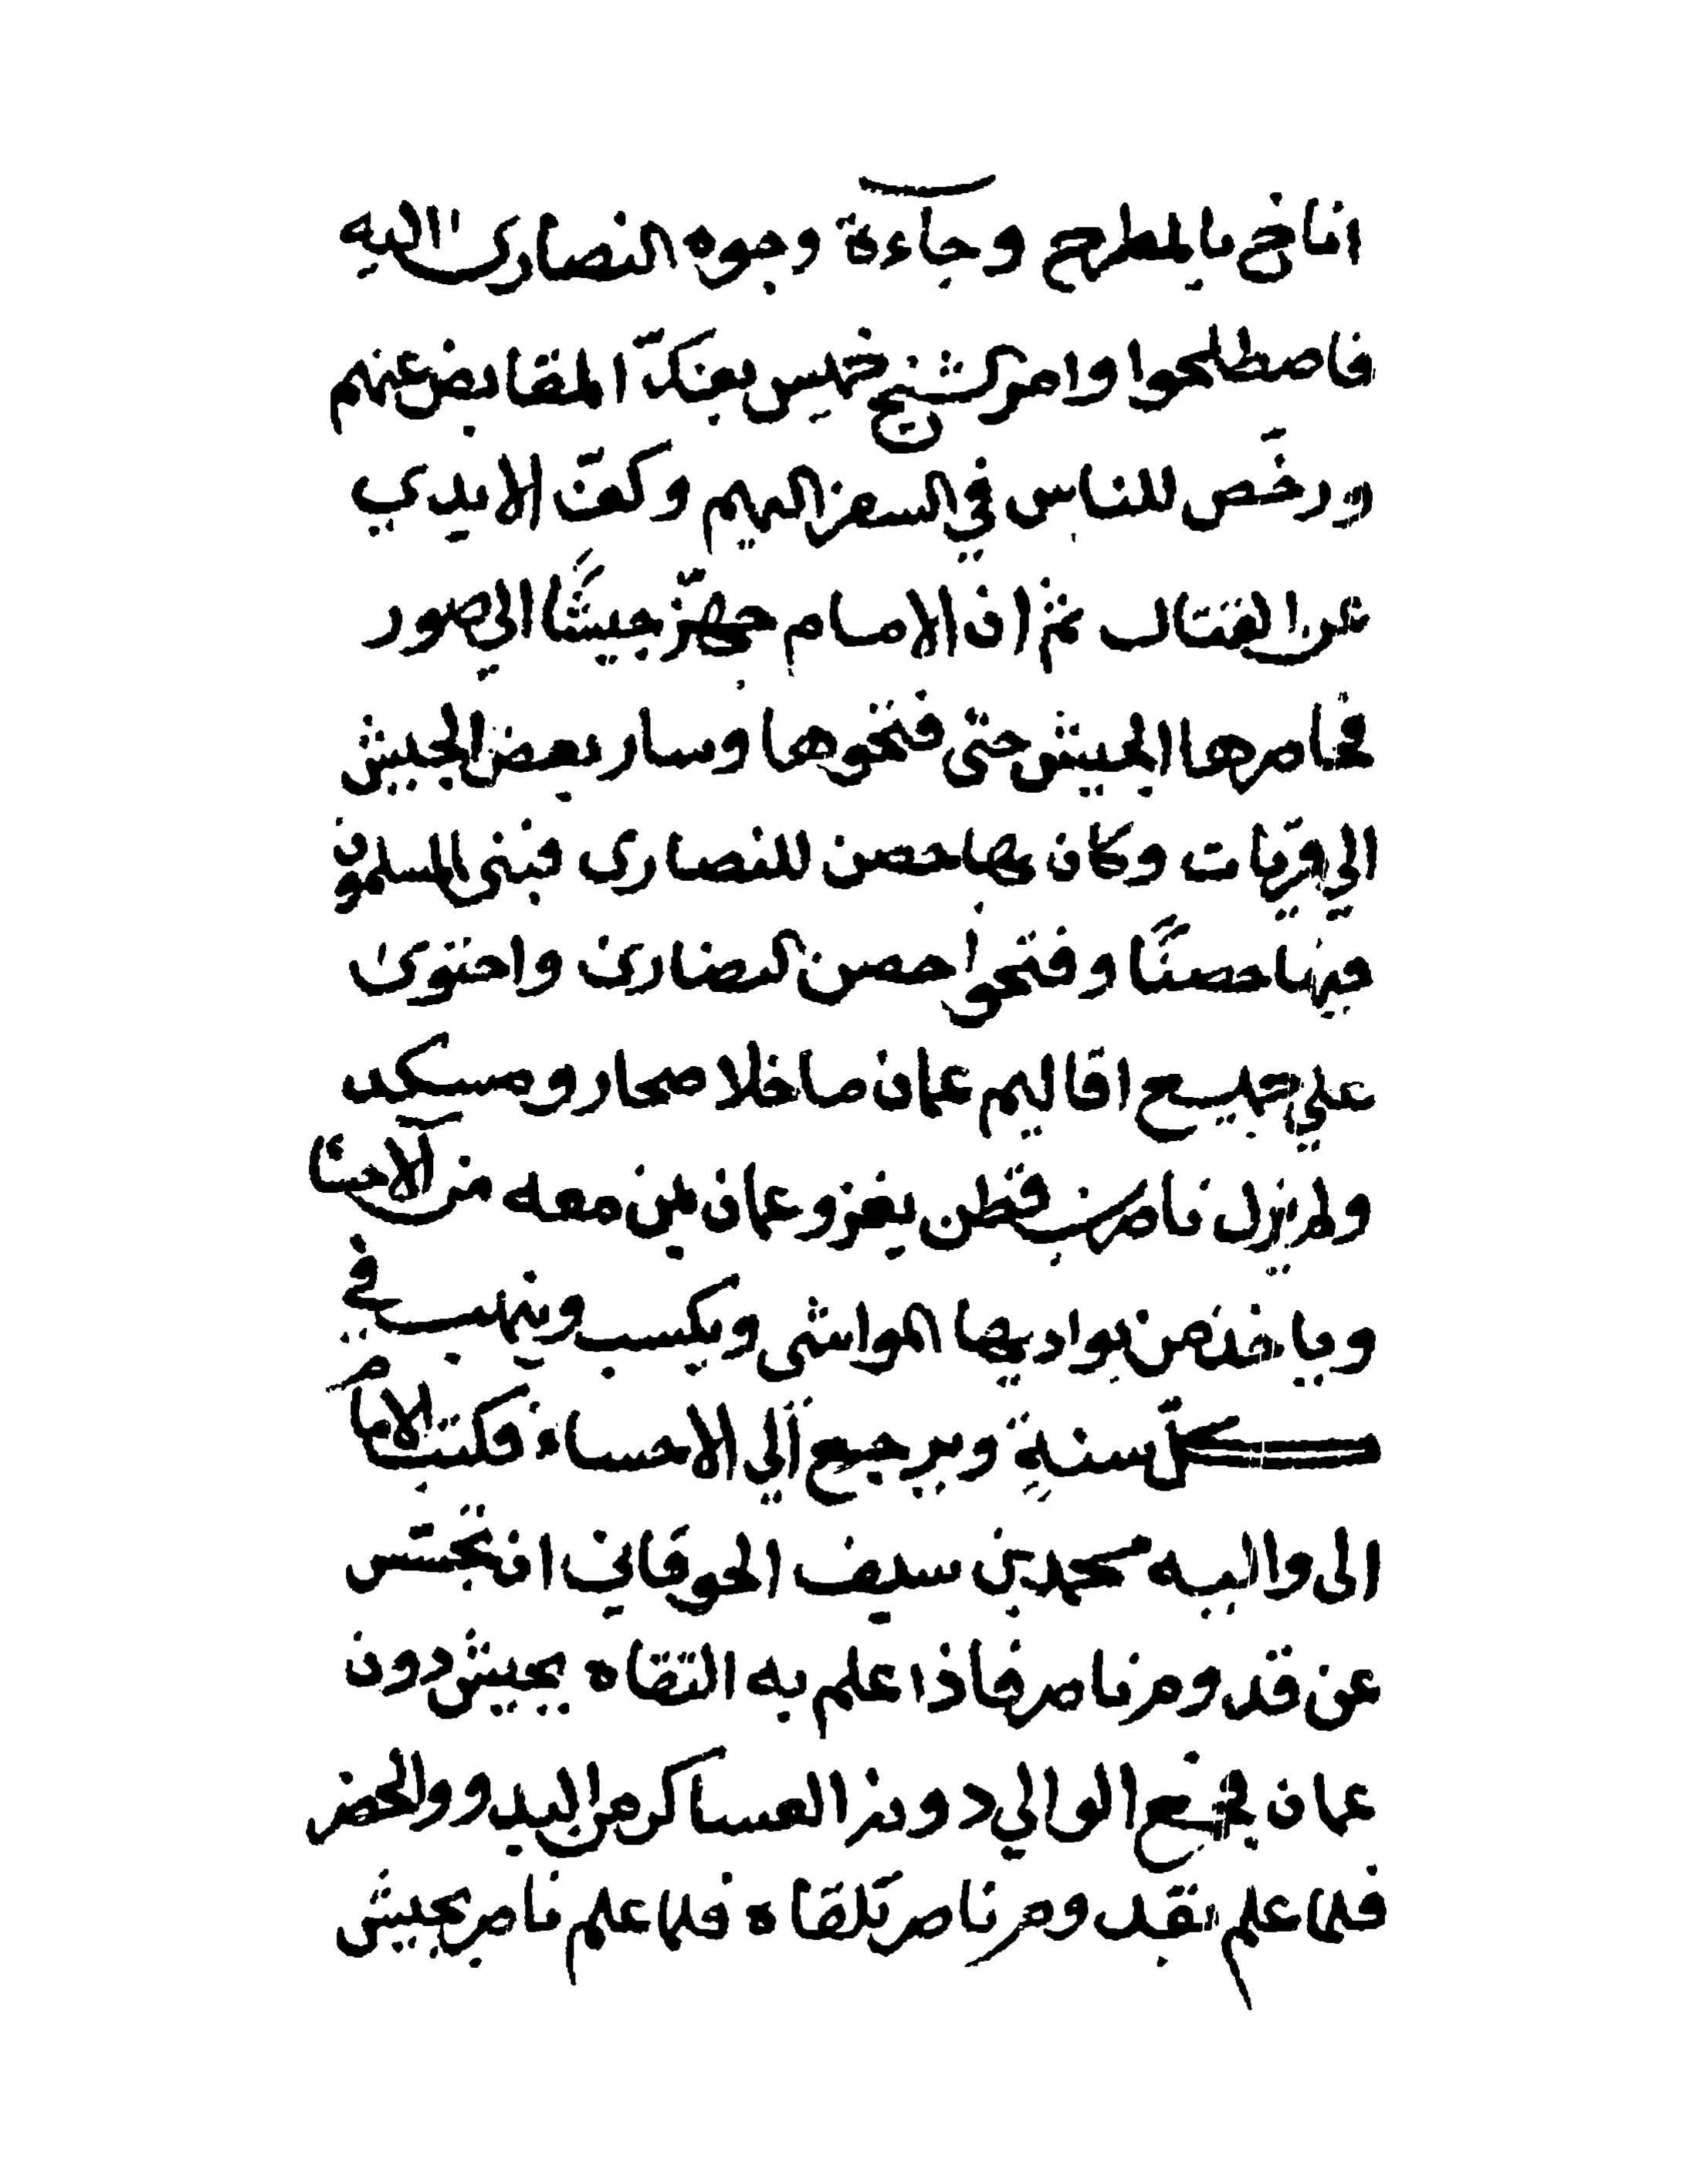 اناخ بالمطرح وجآءة وجوه النصارى اليه
فاصطلحوا وامر الشيخ خميس بفكّ المقابض عنهم
ورخّص للناس في السفر اليهم وكفّت الايدي
عن القتال ثمّ ان الامام جهّز جيشًا الي صور
فحاصرها الجيش حتّى فتحوها وسار بعض الجيش
الي قريات وكان بها حصن للنصارى فبنى المسلمون
فيها حصنًا وفتحوا حصن النصارى واحتوى
علي جميع اقاليم عمان ما خلا صحار ومسكد
ولم يزل ناصر بن قطن يغزو عمان بمن معه من الاحسا
وياخذ من بواديها المواشى ويكسب وينهب في
كلّ سنةٍ ويرجع الي الاحساء فكتب الامام
الى واليه محمد بن سيف الحوقاني ان تجتسّ
عن قدوم ناصر فاذا علم به التقاه بجيش دون
عمان فجمع الوالي دونه العساكر من البدو والحضر
فلما علم بقدوم ناصر تلقاه فلما علم ناصر بجيش